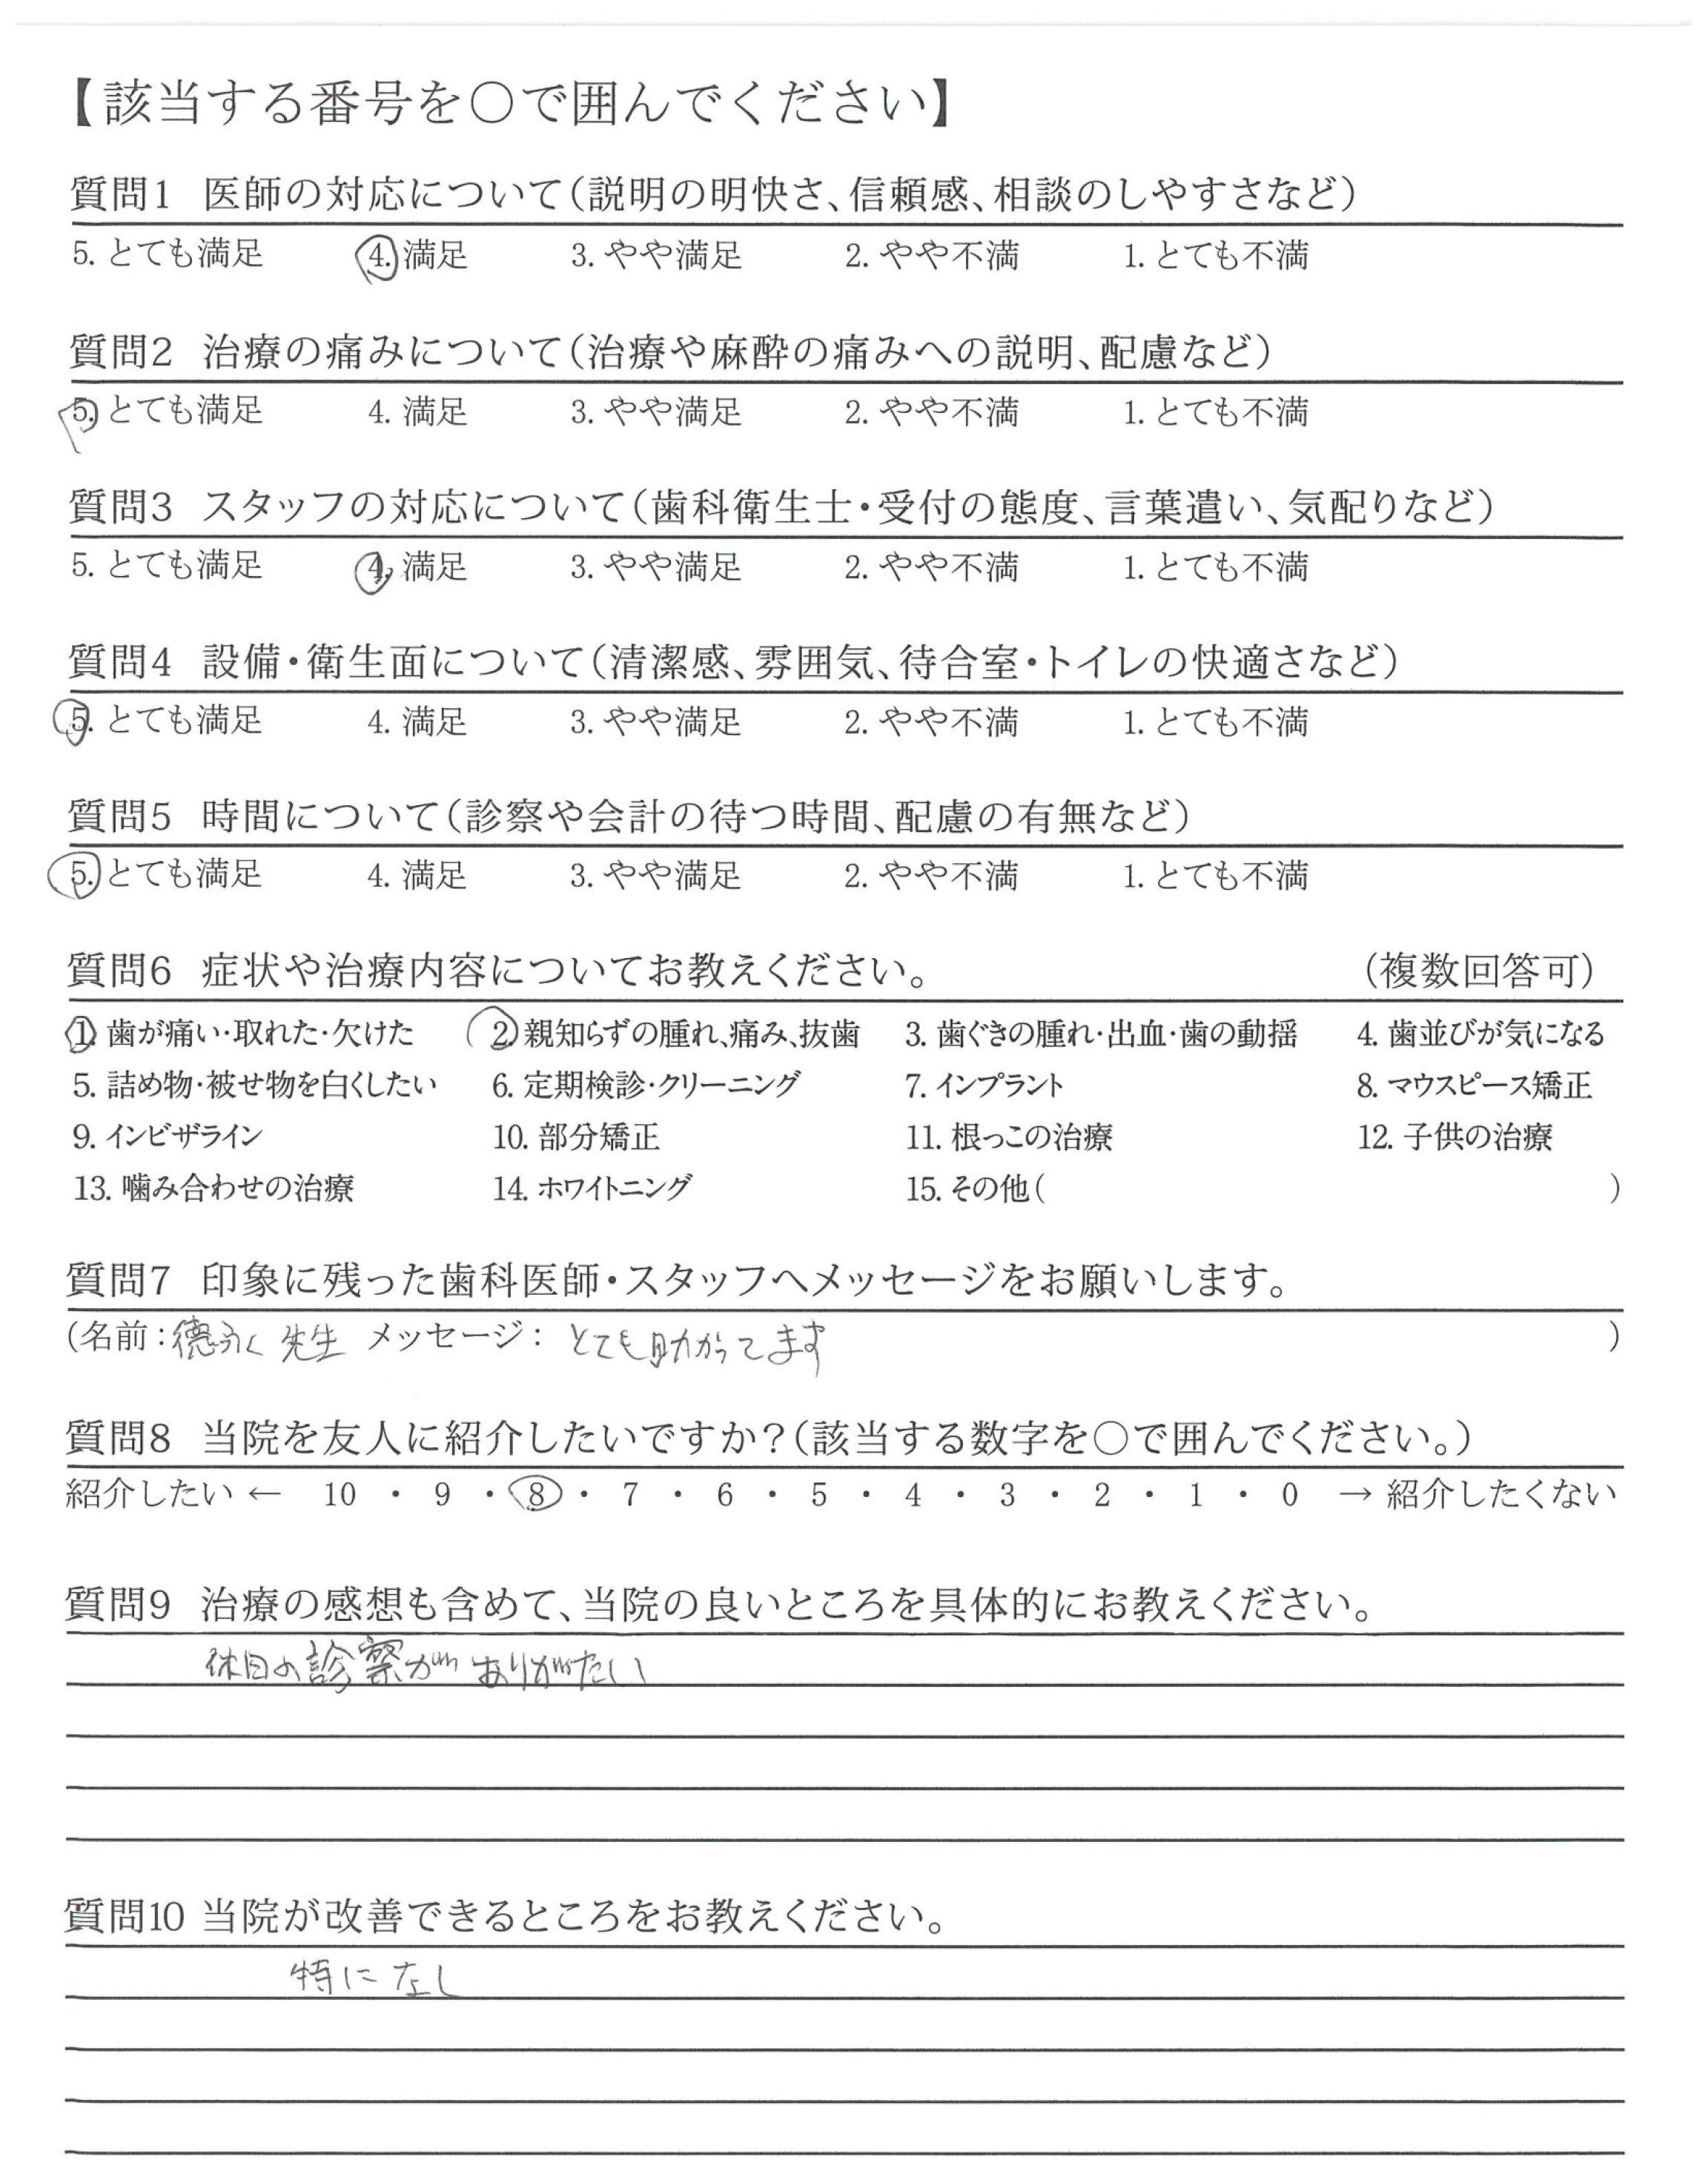 【該当する番号を○で囲んでください】
質問1 医師の対応について(説明の明快さ、信頼感、相談のしやすさなど)
5. とても満足 4. 満足 3. やや満足 2. やや不満 1. とても不満
質問2 治療の痛みについて(治療や麻酔の痛みへの説明、配慮など)
5. とても満足 4. 満足 3. やや満足 2. やや不満 1. とても不満
質問3 スタッフの対応について(歯科衛生士・受付の態度、言葉遣い、気配りなど)
5. とても満足 4. 満足 3. やや満足 2. やや不満 1. とても不満
質問4 設備・衛生面について(清潔感、雰囲気、待合室・トイレの快適さなど)
5. とても満足 4. 満足 3. やや満足 2. やや不満 1. とても不満
質問5 時間について(診察や会計の待つ時間、配慮の有無など)
5. とても満足 4. 満足 3. やや満足 2. やや不満 1. とても不満
質問6 症状や治療内容についてお教えください。 (複数回答可)
1. 歯が痛い・取れた・欠けた 2. 親知らずの腫れ、痛み、抜歯 3. 歯ぐきの腫れ・出血・歯の動揺 4. 歯並びが気になる
5. 詰め物・被せ物を白くしたい 6. 定期検診・クリーニング 7. インプラント 8. マウスピース矯正
9. インビザライン 10. 部分矯正 11. 根っこの治療 12. 子供の治療
13. 噛み合わせの治療 14. ホワイトニング 15. その他( )
質問7 印象に残った歯科医師・スタッフへメッセージをお願いします。
(名前:徳永 先生 メッセージ: とても助かってます )
質問8 当院を友人に紹介したいですか?(該当する数字を○で囲んでください。)
紹介したい ← 10 ・ 9 ・ 8 ・ 7 ・ 6 ・ 5 ・ 4 ・ 3 ・ 2 ・ 1 ・ 0 → 紹介したくない
質問9 治療の感想も含めて、当院の良いところを具体的にお教えください。
休日の診察がありがたい
質問10 当院が改善できるところをお教えください。
特になし